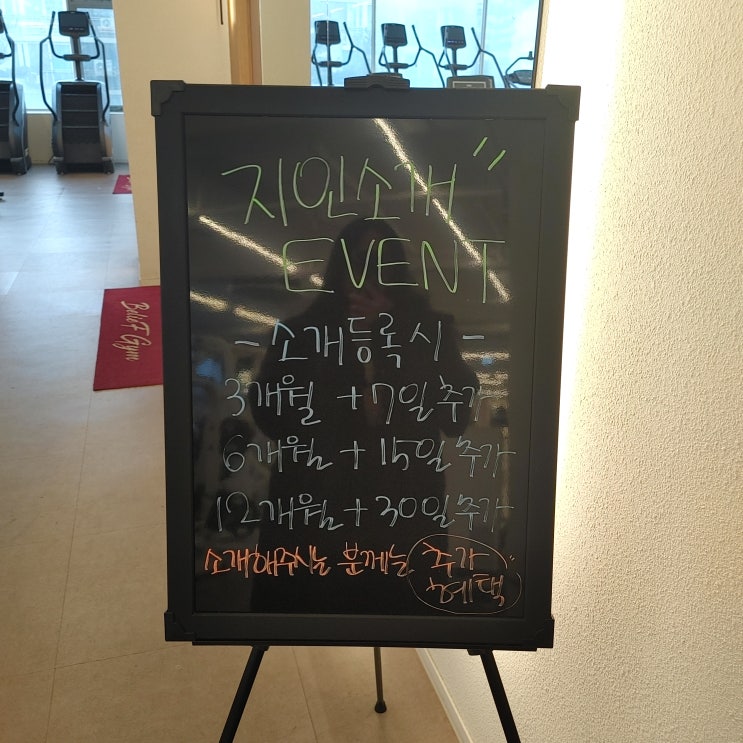 지인소개"
EVENT
- 소개등록시 -
3개월 + 7일 추가
6개월 + 15일 추가
12개월 + 30일 추가
소개해주시는 분께는 추가"
혜택
BelieF Gym